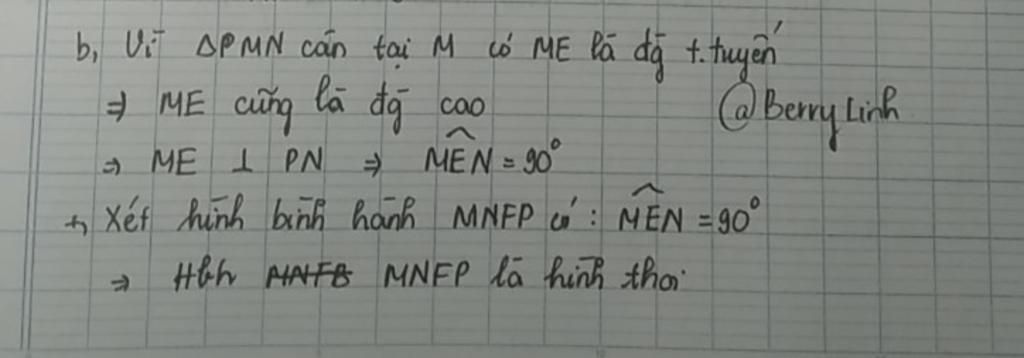 b, Vì ΔPMN cân tại M có ME là đg t.tuyến
⇒ ME cũng là đg cao
@Berry Linh
⇒ ME ⊥ PN ⇒ MÊN = 90°
+, Xét hình bình hành MNFP có : MÊN = 90°
⇒ Hbh MNFP là hình thoi